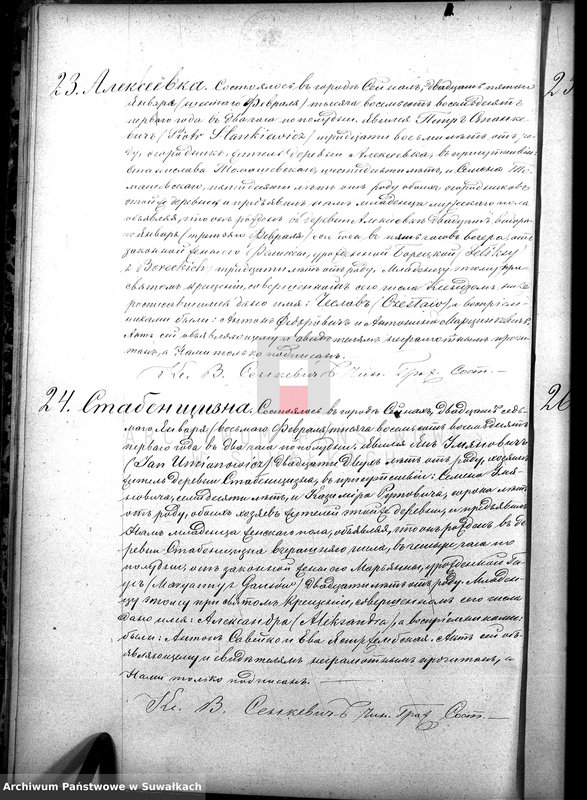 23. Алексеевка. Состоялось въ городѣ Сейнахъ, двадцать пятаго
Января /шестаго Февраля/ тысяча восемьсотъ восемьдесятъ
перваго года въ два часа по полудни. Явился Петръ Станке-
вичъ /Piotr Stankiewicz/ тридцати восьми лѣтъ отъ ро-
ду, огородникъ, житель деревни Алексеевка, въ присутствіи
Станислава Томашевскаго, шестидесяти лѣтъ, и Семена То-
машевскаго, пятидесяти лѣтъ отъ роду обоихъ огородниковъ
той же деревни и предъявилъ намъ младенца мужескаго пола
объявляя, что онъ рожденъ въ деревнѣ Алексеевка двадцать втора-
го Января /третьяго Февраля/ сего года, въ пять часовъ вечера, отъ
законной жены его урожденной
тридцати лѣтъ отъ роду. Младенцу этому при
святомъ крещеніи, совершенномъ сего числа Ксендзомъ
дано имя: Чеславъ /Czesław/, а воспріем-
никами были: Антонъ Федоровичъ и Антонина
Актъ сей объявляющему и свидѣтелямъ неграмотнымъ прочи-
танъ, а Нами только подписанъ.
Кс. В. Сенкевичъ Чин. Граж. Сост.
24. Стабенщизна. Состоялось въ городѣ Сейнахъ, двадцать седь-
маго Января /восьмаго Февраля/ тысяча восемьсотъ восемьдесятъ
перваго года въ два часа по полудни. Явился Янъ Умяновичъ
/Jan Umianowicz/ двадцати двухъ лѣтъ отъ роду, хозяинъ
житель деревни Стабенщизна, въ присутствіи: Семена Умя-
новича, семидесяти лѣтъ, и Казиміра Рутовича, сорока лѣтъ
отъ роду, обоихъ хозяевъ жителей той же деревни, и предъявилъ
Намъ младенца женскаго пола, объявляя, что онъ рожденъ въ де-
ревнѣ Стабенщизна вчерашняго числа, въ четыре часа по
полудни, отъ законной жены его Марьянны, урожденной Га-
/Maryanny z / двадцати лѣтъ отъ роду. Младен-
цу этому при святомъ крещеніи, совершенномъ сего числа
дано имя: Александра /Aleksandra/, а воспріемниками
были: Антонъ Савейко и Ева Ястржембская. Актъ сей объ-
являющему и свидѣтелямъ неграмотнымъ прочитанъ, а
Нами только подписанъ.
Кс. В. Сенкевичъ Чин. Граж. Сост.
25
26
Archiwum Państwowe w Suwałkach